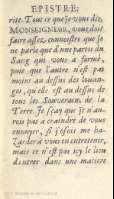 EPISTRE.
rité. Tout ce que je vous dis,
MONSEIGNEUR, vous doit
faire assez connoistre que je
ne parle que d'une partie du
Sang qui vous a formé,
puis que l'autre n'est pas
moins au dessus des louan-
ges, qu'elle est au dessus de
tous les Souverains de la
Terre. Je sçay que je n'au-
rois pas à craindre de vous
ennuyer, si j'osois me ha-
zarder à vous en entretenir,
mais ce n'est pas icy le lieu
d'entrer dans une matiere